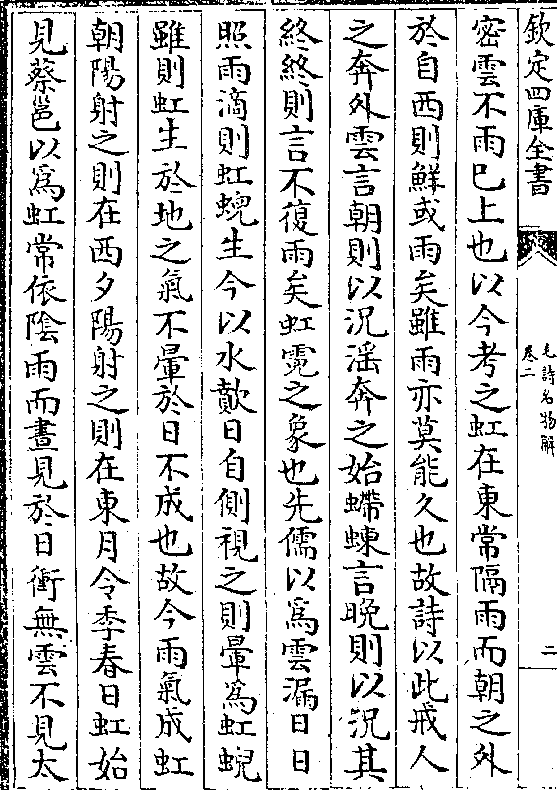 欽定四庫全書
毛詩名物解
卷二
二
密雲不雨已上也以今考之虹在東常隔雨而朝之外
於自西則鮮或雨矣雖雨亦莫能久也故詩以此戒人
之奔外雲言朝則以況淫奔之始蝃蝀言晚則以況其
終終則言不復雨矣虹霓之象也先儒以為雲漏日日
照雨滴則虹蜺生今以水歕日自側視之則暈為虹蜺
雖則虹生於地之氣不暈於日不成也故今雨氣成虹
朝陽射之則在西夕陽射之則在東月令季春日虹始
見蔡邕以為虹常依陰雨而晝見於日衝無雲不見太